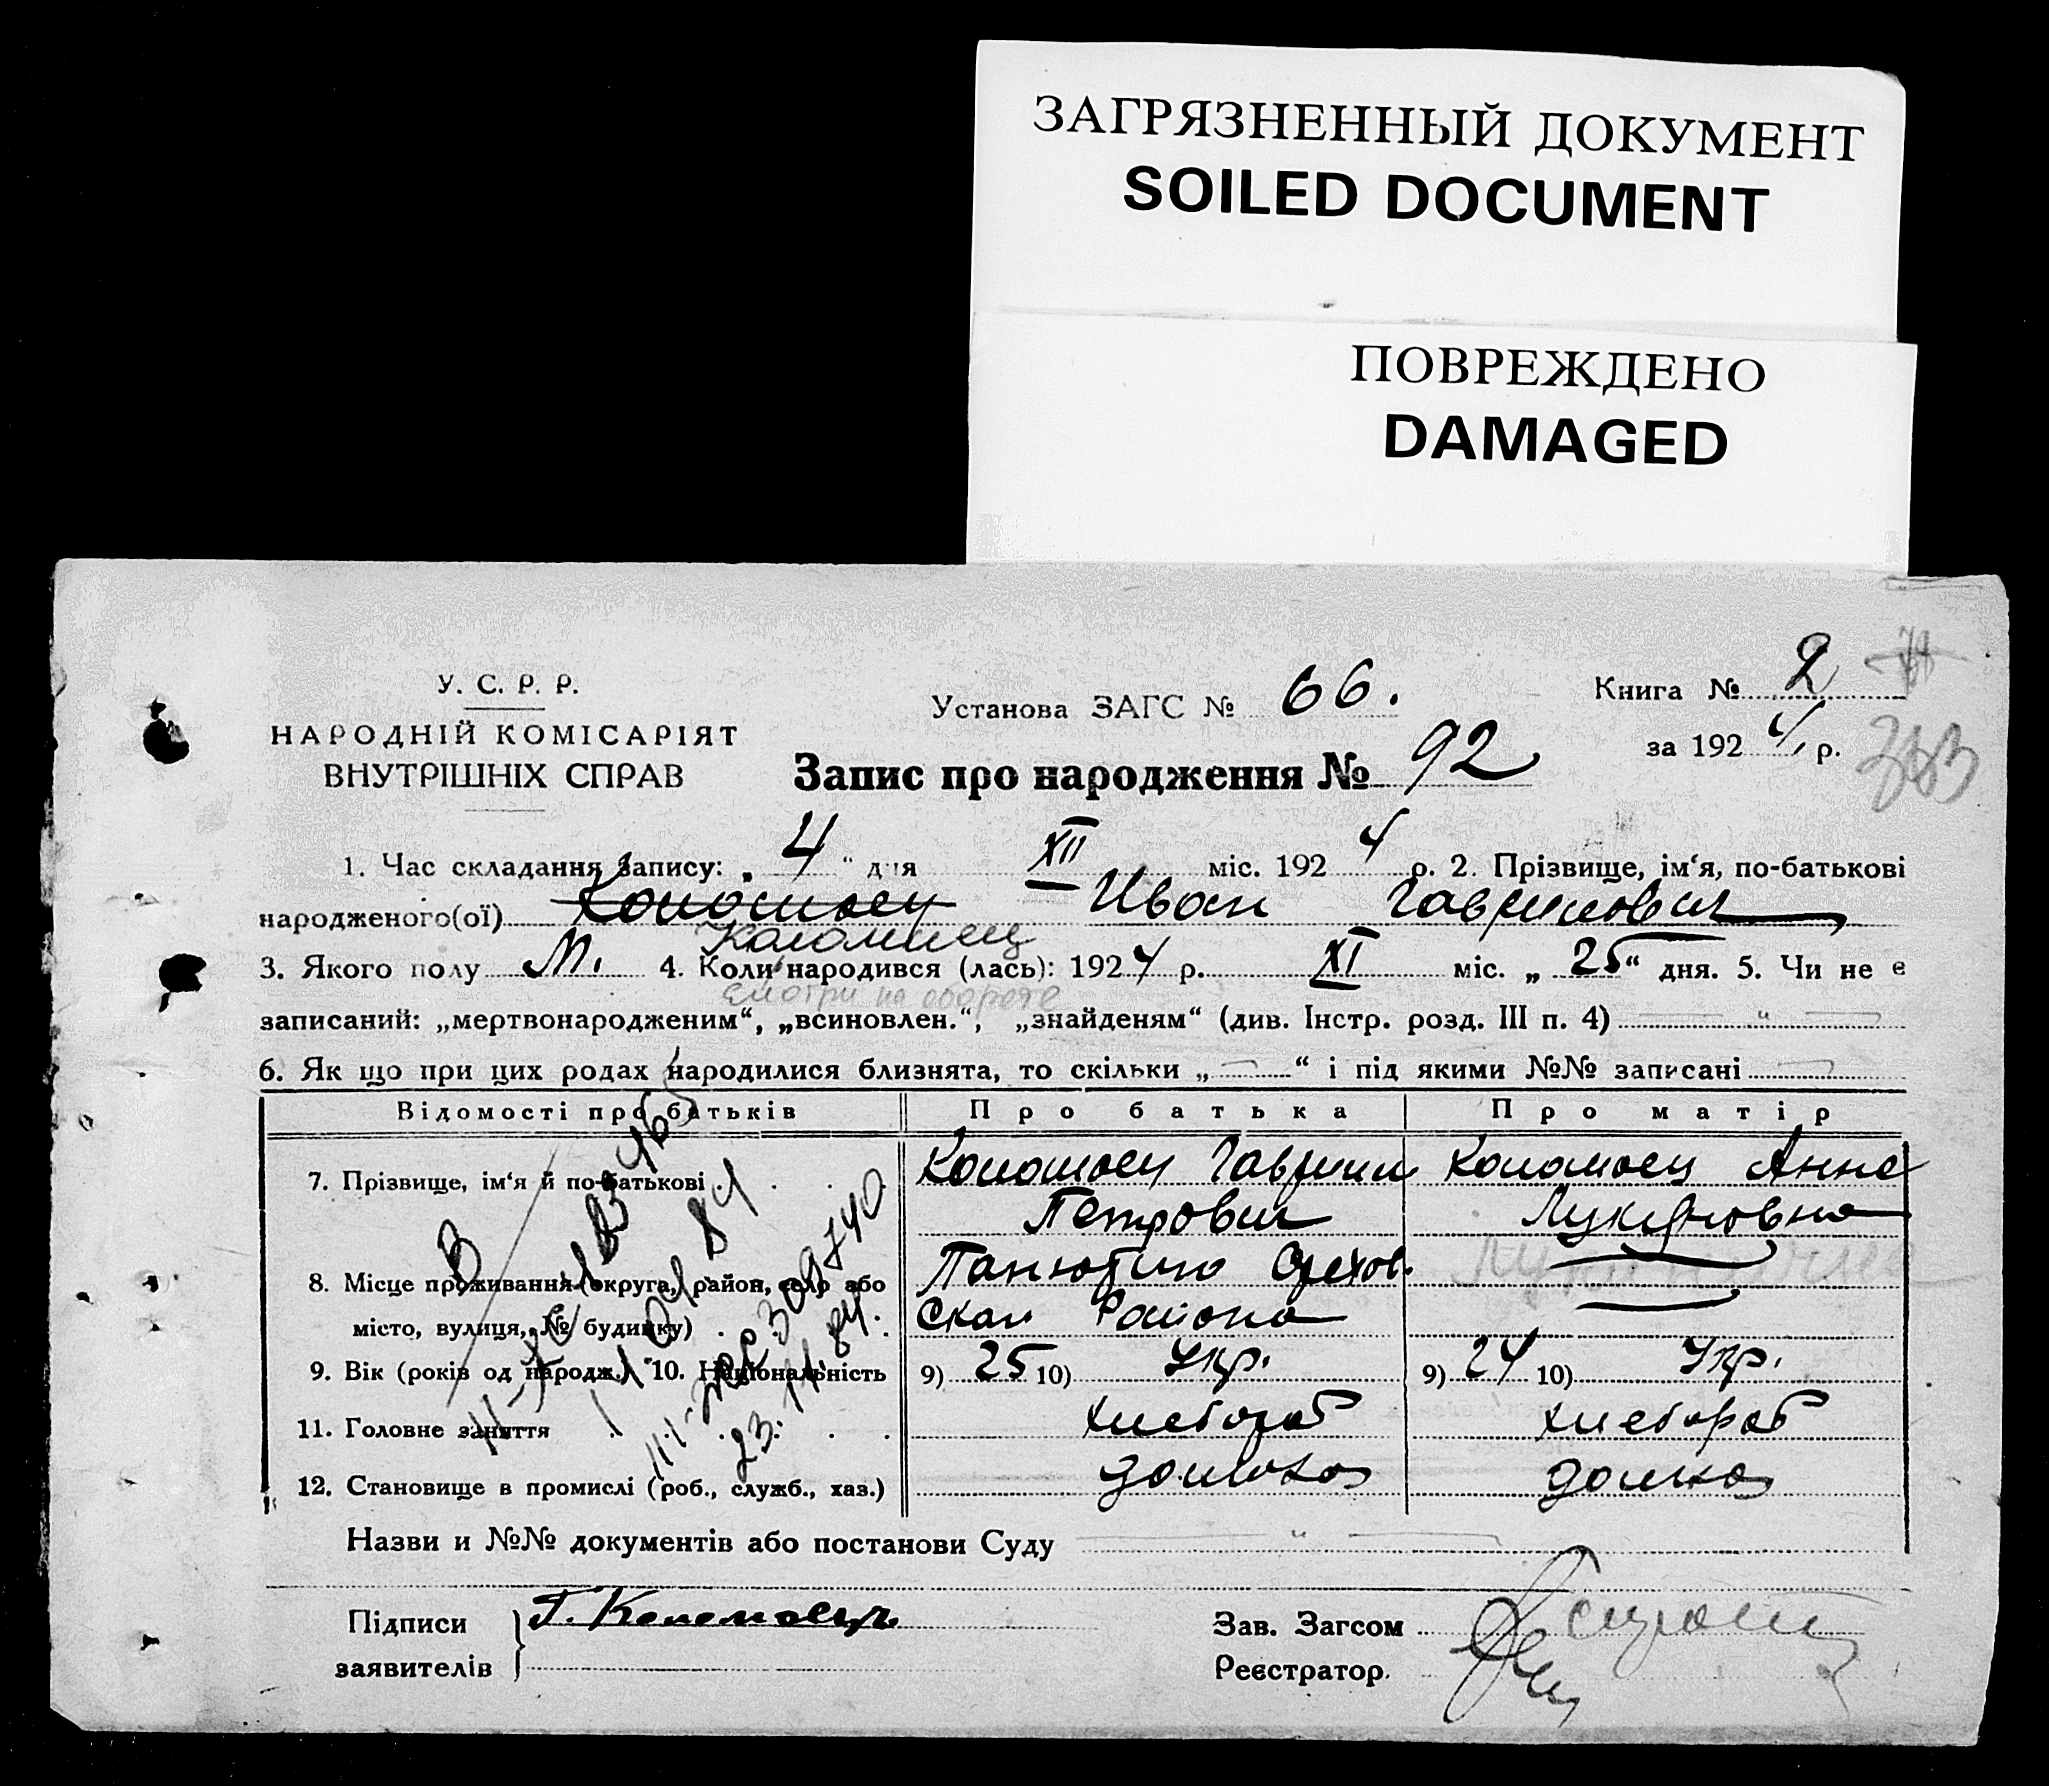 ЗАГРЯЗНЕННЫЙ ДОКУМЕНТ
SOILED DOCUMENT
ПОВРЕЖДЕНО
DAMAGED
У. С. Р. Р.
НАРОДНІЙ КОМІСАРІЯТ
ВНУТРІШНІХ СПРАВ
Установа ЗАГС № 66.
Книга № 2
за 1924 р.
Запис про народження № 92
1. Час складання запису: „4“ дня XII міс. 1924 р. 2. Прізвище, ім‘я, по-батькові
народженого(ої) Коломоец Иван Гаврилович
Коломиец
3. Якого полу М. 4. Коли народився (лась): 1924 р. XI міс. „25“ дня. 5. Чи не є
смотри на обороте
записаний: „мертвонародженим“, „всиновлен.“, „знайденям“ (див. Інстр. розд. III п. 4) — „ —
6. Як що при цих родах народилися близнята, то скільки „—“ і під якими №№ записані —
Відомості про батьків Про батька Про матір
7. Прізвище, ім‘я й по-батькові Коломоец Гаврил Коломоец Анна
Петрович Лукяновна
8. Місце проживання (округа, район, село або Панютино Орехов.
місто, вулиця, № будинку) Скаго Района
9. Вік (років од народж.) 10. Національність 9) 25 10) Укр. 9) 24 10) Укр.
11. Головне заняття хлебороб хлебороб
12. Становище в промислі (роб., служб., хаз.)
Назви и №№ документів або постанови Суду — „ —
Підписи Г. Коломоец
заявителів
Зав. Загсом
Реєстратор.